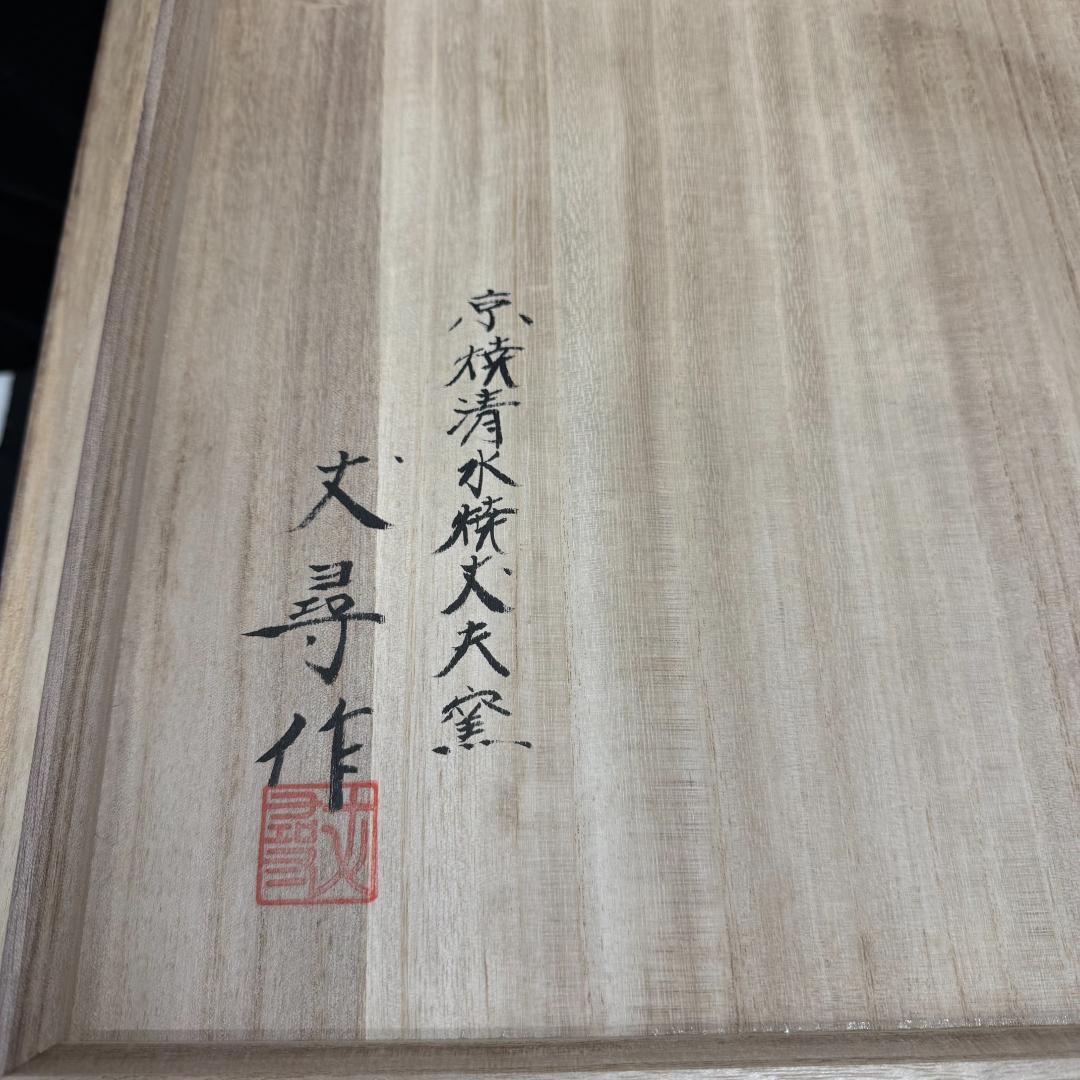 京焼清水焼丈夫窯
丈尋作
丈尋